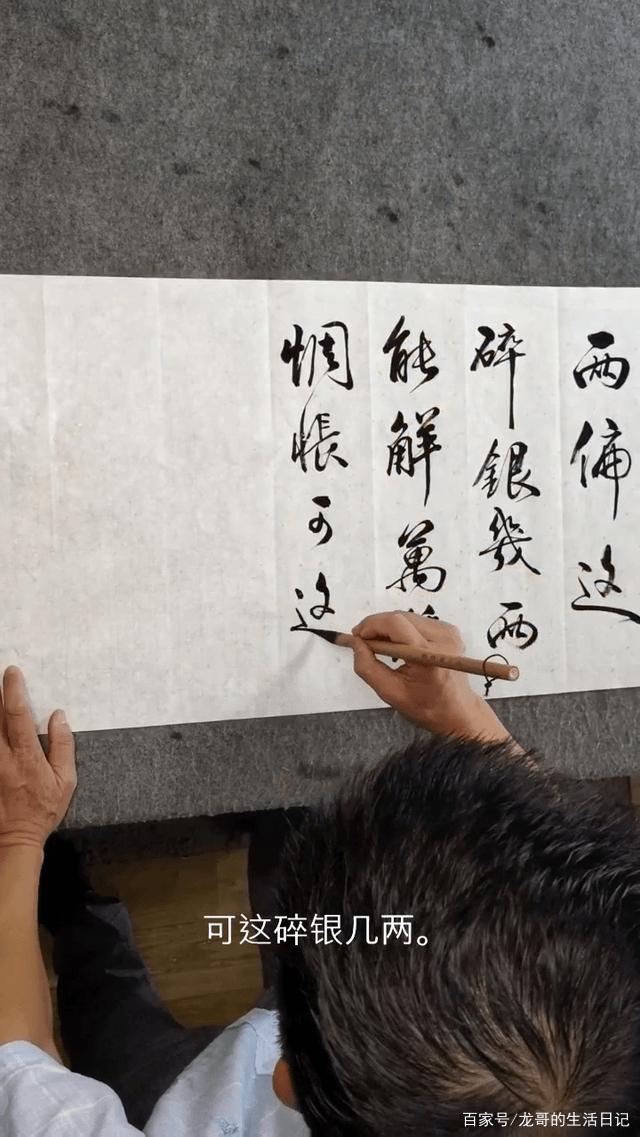 两偏这
碎銀幾两
能解萬
惆悵可这
可这碎银几两。
百家号/龙哥的生活日记